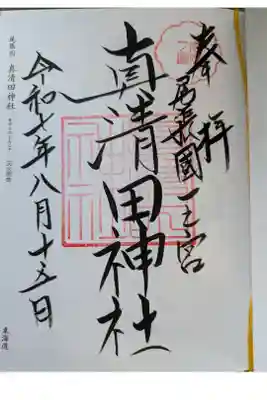 奉拝
尾張國一之宮
真清田神社
令和七年八月十五日
尾張国 真清田神社
東海道